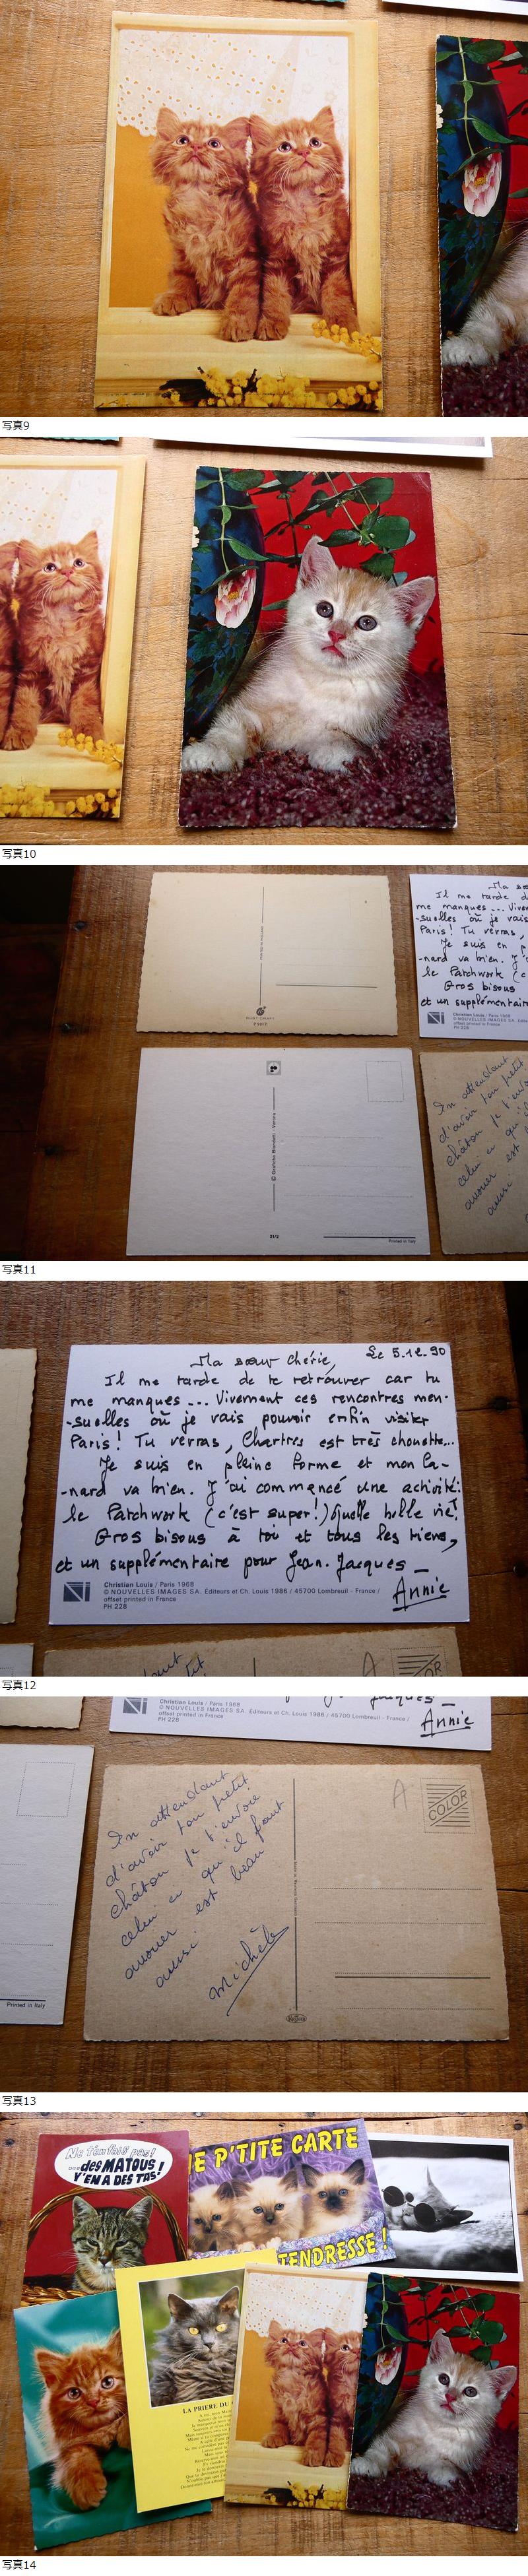 写真9
写真10
Ma sœ
Il me tarde d
me manques ... Vivem
-suelles où je vais
Paris! Tu verras,
Je suis en p
-nard va bien. J'a
le Patchwork (c
Gros bisous
et un supplémentaire
Christian Louis / Paris 1968
© NOUVELLES IMAGES SA. Édite
offset printed in France
PH 228
© Grafiche Biondetti - Verona
Printed in Italy
En attendant
d'avoir ton petit
châton je t'envo
celui ci qu'i
avouer est
aussi
写真11
Le 5.12.90
Ma sœur chérie,
Il me tarde de te retrouver car tu
me manques ... Vivement ces rencontres men-
-suelles où je vais pouvoir enfin visiter
Paris! Tu verras, Chartres est très chouette...
Je suis en pleine forme et mon Ca-
-nard va bien. J'ai commencé une activité:
le Patchwork (c'est super!) Quelle belle vie!
Gros bisous à toi et tous les tiens,
et un supplémentaire pour Jean-Jacques
Annie
Christian Louis / Paris 1968
© NOUVELLES IMAGES SA. Éditeurs et Ch. Louis 1986 / 45700 Lombreuil - France /
offset printed in France
PH 228
写真12
Christian Louis / Paris 1968
© NOUVELLES IMAGES SA. Éditeurs et Ch. Louis 1986 / 45700 Lombreuil - France /
offset printed in France
PH 228
Jacques
Annie
Printed in Italy
A
COLOR
En attendant
d'avoir ton petit
châton je t'envoie
celui ci qu'il faut
avouer est beau
aussi
Michèle
写真13
Ne t'en fais pas!
...des MATOUS!
Y'EN A DES TAS!
NE P'TITE CARTE
TENDRESSE!
LA PRIERE DU
写真14